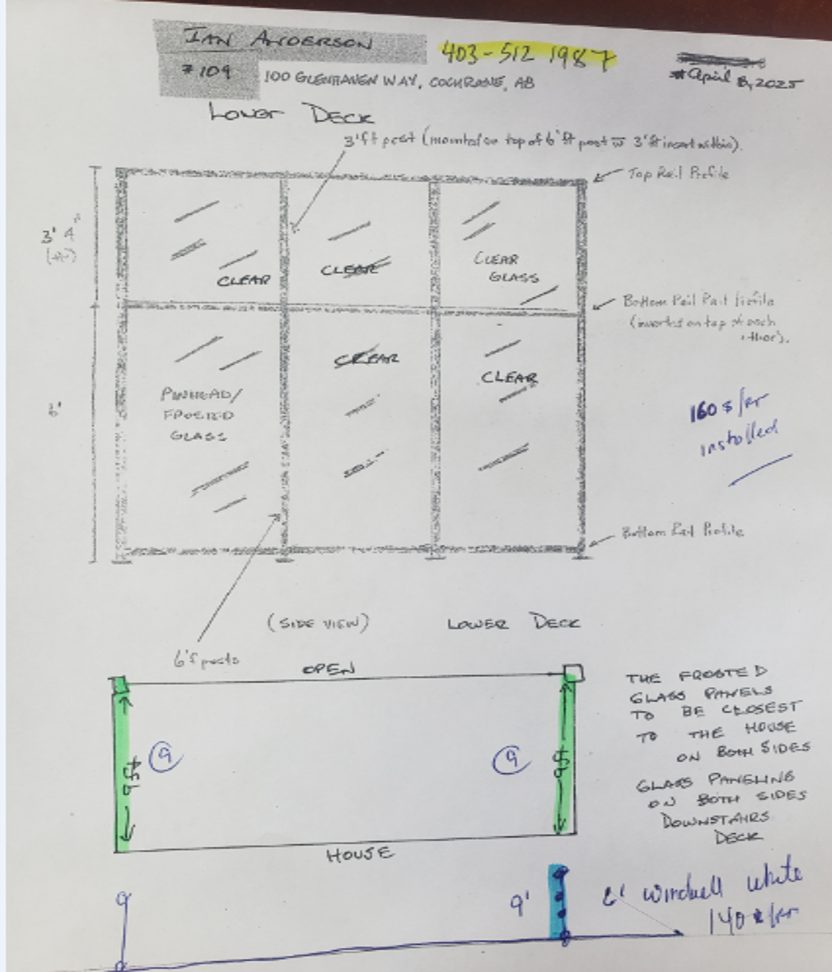 IAN ANDERSON
403-512 1987
#109
100 GLENHAVEN WAY, COCHRANE, AB
April 8, 2025
LOWER DECK
3'ft post (mounted on top of 6'ft post w 3'ft insert within).
Top Rail Profile
3' 4"
CLEAR
CLEAR
CLEAR
GLASS
Bottom Rail Rail Profile
(inverts on top of each
other).
6'
PINHEAD/
FROSTED
GLASS
CLEAR
CLEAR
160 $/
installed
Bottom Rail Profile
6'ft posts
(SIDE VIEW)
LOWER DECK
OPEN
9ft
9
9
9ft
HOUSE
THE FROSTED
GLASS PANELS
TO BE CLOSEST
TO THE HOUSE
ON BOTH SIDES
GLASS PANELING
ON BOTH SIDES
DOWNSTAIRS
DECK
9'
6' windwall white
140 $/